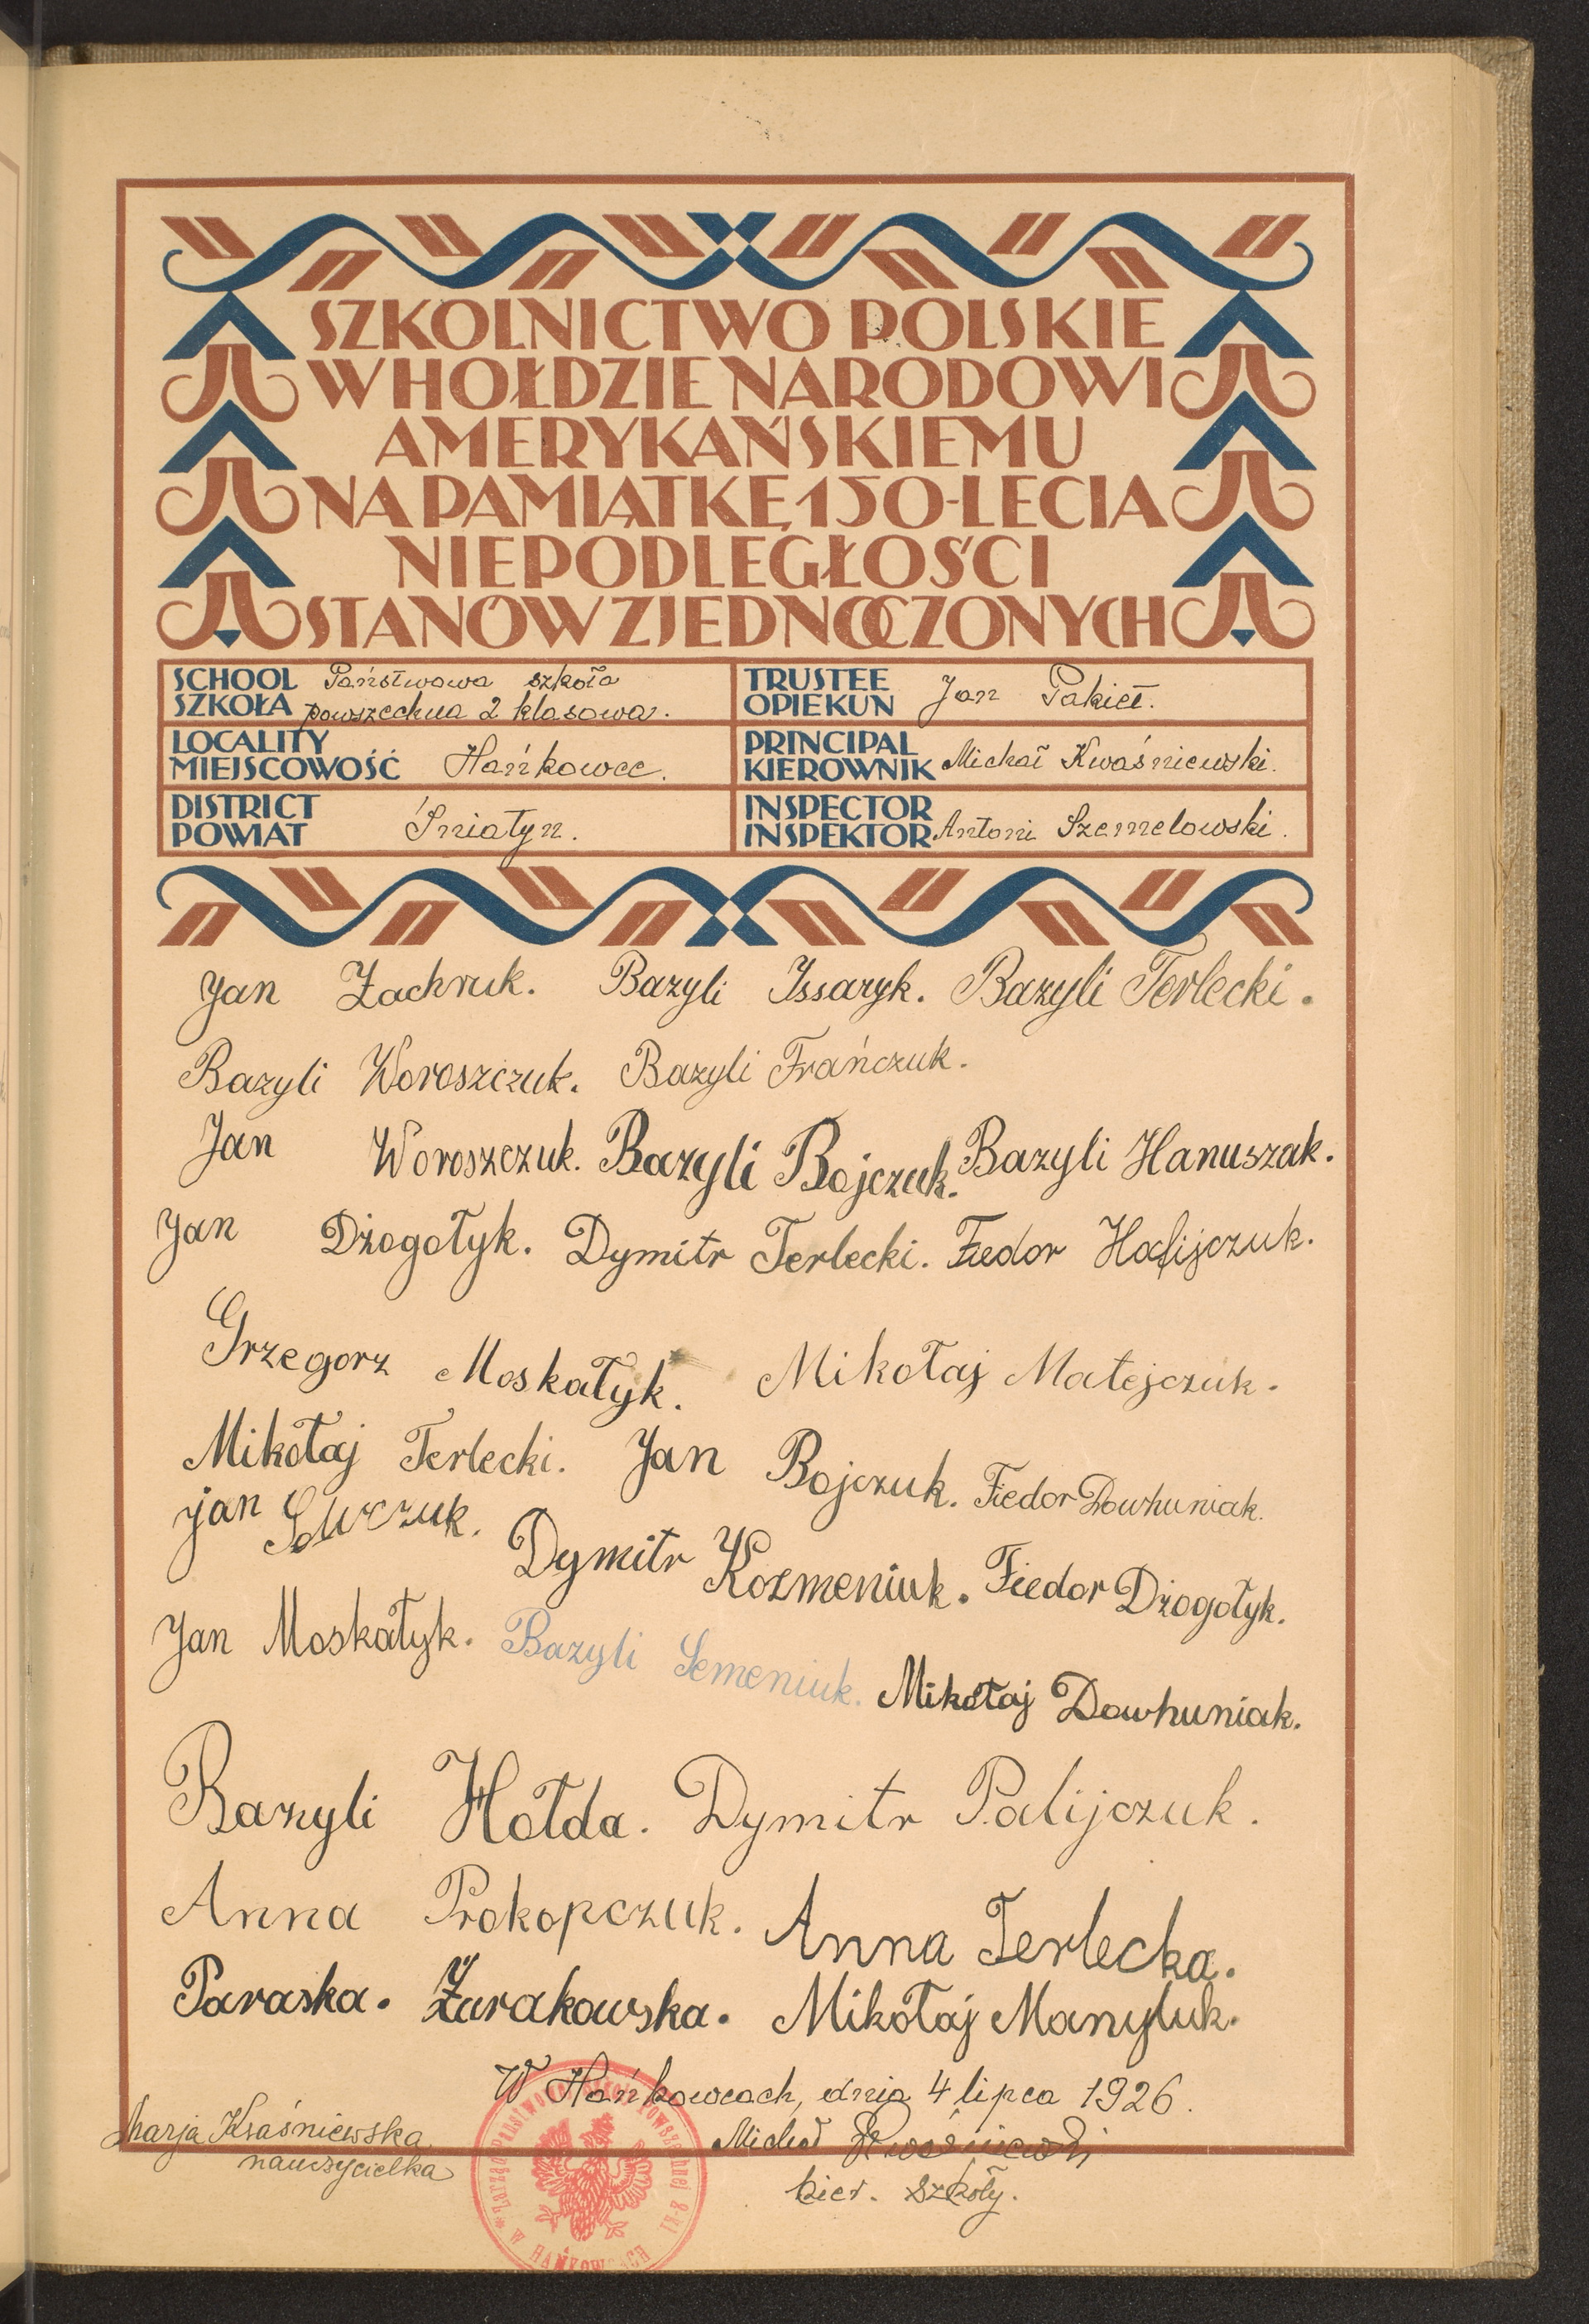 SZKOLNICTWO POLSKIE
W HOŁDZIE NARODOWI
AMERYKAŃSKIEMU
NA PAMIĄTKĘ 150-LECIA
NIEPODLEGŁOŚCI
STANÓW ZJEDNOCZONYCH
SCHOOL
SZKOŁA
Państwowa szkoła
powszechna 2 klasowa.
TRUSTEE
OPIEKUN
Jan Pakieł.
LOCALITY
MIEJSCOWOŚĆ
Hańkowce.
PRINCIPAL
KIEROWNIK
Michał Kwaśniewski.
DISTRICT
POWIAT
Śniatyn.
INSPECTOR
INSPEKTOR
Antoni Szemelowski.
Jan Zachruk. Bazyli Issaryk. Bazyli Terlecki.
Bazyli Woroszczuk. Bazyli Frańczuk.
Jan Woroszczuk. Bazyli Bojczuk. Bazyli Hanuszak.
Jan Dżogołyk. Dymitr Terlecki. Fiedor Hafijczuk.
Grzegorz Moskałyk. Mikołaj Matejczuk.
Mikołaj Terlecki. Jan Bojczuk. Fiedor Dowhuniak.
Jan
Dymitr Kozmeniuk. Fiedor Dżogołyk.
Jan Moskałyk. Bazyli Semeniuk. Mikołaj Dowhuniak.
Bazyli Hołda. Dymitr Palijczuk.
Anna Prokopczuk. Anna Terlecka.
Paraska. Żurakowska. Mikołaj Manyluk.
W Hańkowcach, dnia 4 lipca 1926.
Marja Kwaśniewska
nauczycielka
Michał Kwaśniewski
kier. szkoły.
Zarząd Państwowej Szkoły Powszechnej 2-kl
W HAŃKOWCACH